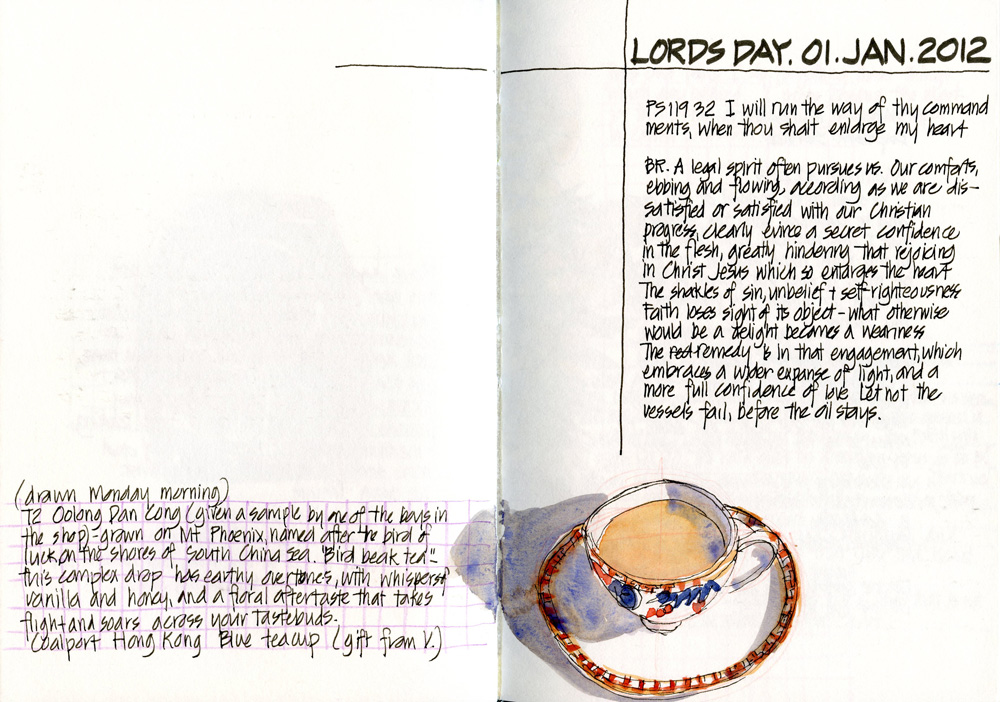 (drawn Monday morning)
T2 Oolong Dan Cong (given a sample by one of the boys in
the shop)-grown on Mt Phoenix, named after the bird of
luck, on the shores of South China Sea. "Bird beak tea"-
this complex drop has earthy overtones, with whispers of
vanilla and honey, and a floral aftertaste that takes
flight and soars across your tastebuds.
Coalport Hong Kong Blue teacup (gift from V.)
LORDS DAY. 01. JAN. 2012
PS 119 32 I will run the way of thy command
ments, when thou shalt enlarge my heart
BR. A legal spirit often pursues us. Our comforts,
ebbing and flowing, according as we are dis-
satisfied or satisfied with our Christian
progress, clearly evince a secret confidence
in the flesh, greatly hindering that rejoicing
in Christ Jesus which so enlarges the heart
The shakles of sin, unbelief + self-righteousness
Faith loses sight of its object - what otherwise
would be a delight becomes a weariness
The remedy is in that engagement, which
embraces a wider expanse of light, and a
more full confidence of love Let not the
vessels fail, before the oil stays.